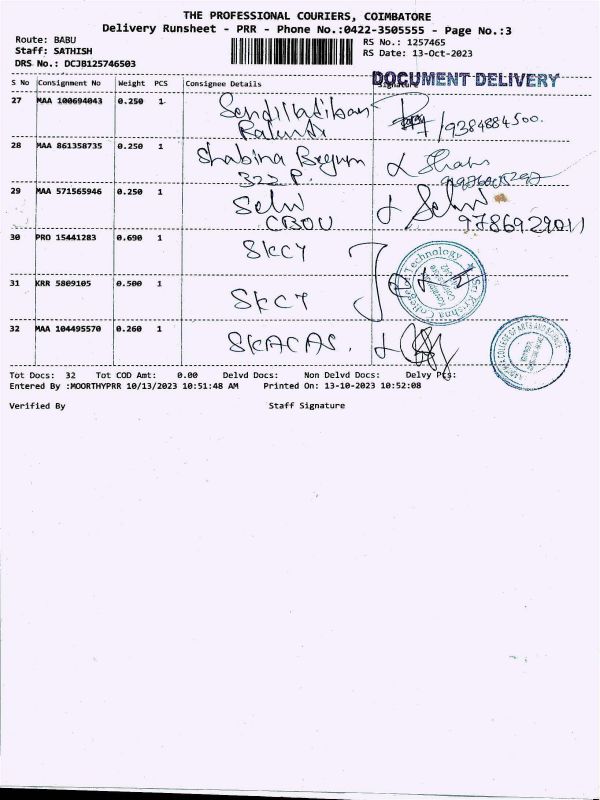 THE PROFESSIONAL COURIERS, COIMBATORE
Delivery Runsheet - PRR - Phone No.:0422-3505555 - Page No.:3
Route: BABU
RS No.: 1257465
Staff: SATHISH
RS Date: 13-Oct-2023
DRS No.: DCJB125746503
DOCUMENT DELIVERY
S No Consignment No Weight PCS Consignee Details Signature
27 MAA 100694043 0.250 1
9384884500.
28 MAA 861358735 0.250 1 Shabina Begum
322 P.
29 MAA 571565946 0.250 1 Selvi Selvi
CBOU 9786929011
30 PRO 15441283 0.690 1 SKCY
Sri Krishna College Technology
Coimbatore
31 KRR 5809105 0.500 1 SKCT
32 MAA 104495570 0.260 1 SKACAS.
COLLEGE OF ARTS AND SCIENCE
Tot Docs: 32 Tot COD Amt: 0.00 Delvd Docs: Non Delvd Docs: Delvy Pts:
Entered By :MOORTHYPRR 10/13/2023 10:51:48 AM Printed On: 13-10-2023 10:52:08
Verified By Staff Signature